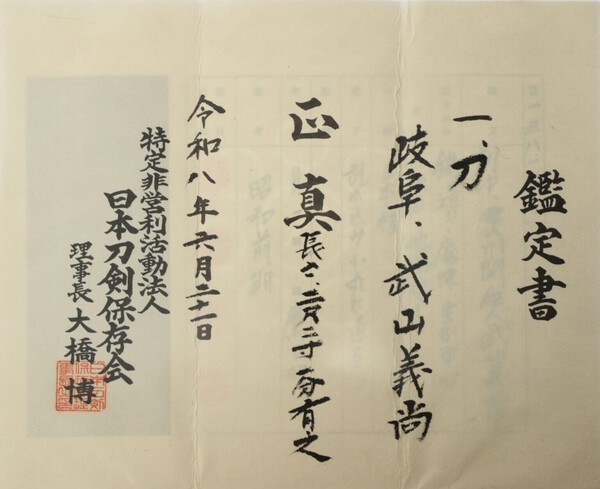 鑑定書
一、刀
岐阜、武山義尚
正真 長さ、二尺三寸 分有之
令和八年六月二十一日
特定非営利活動法人
日本刀剣保存会
理事長 大橋 博